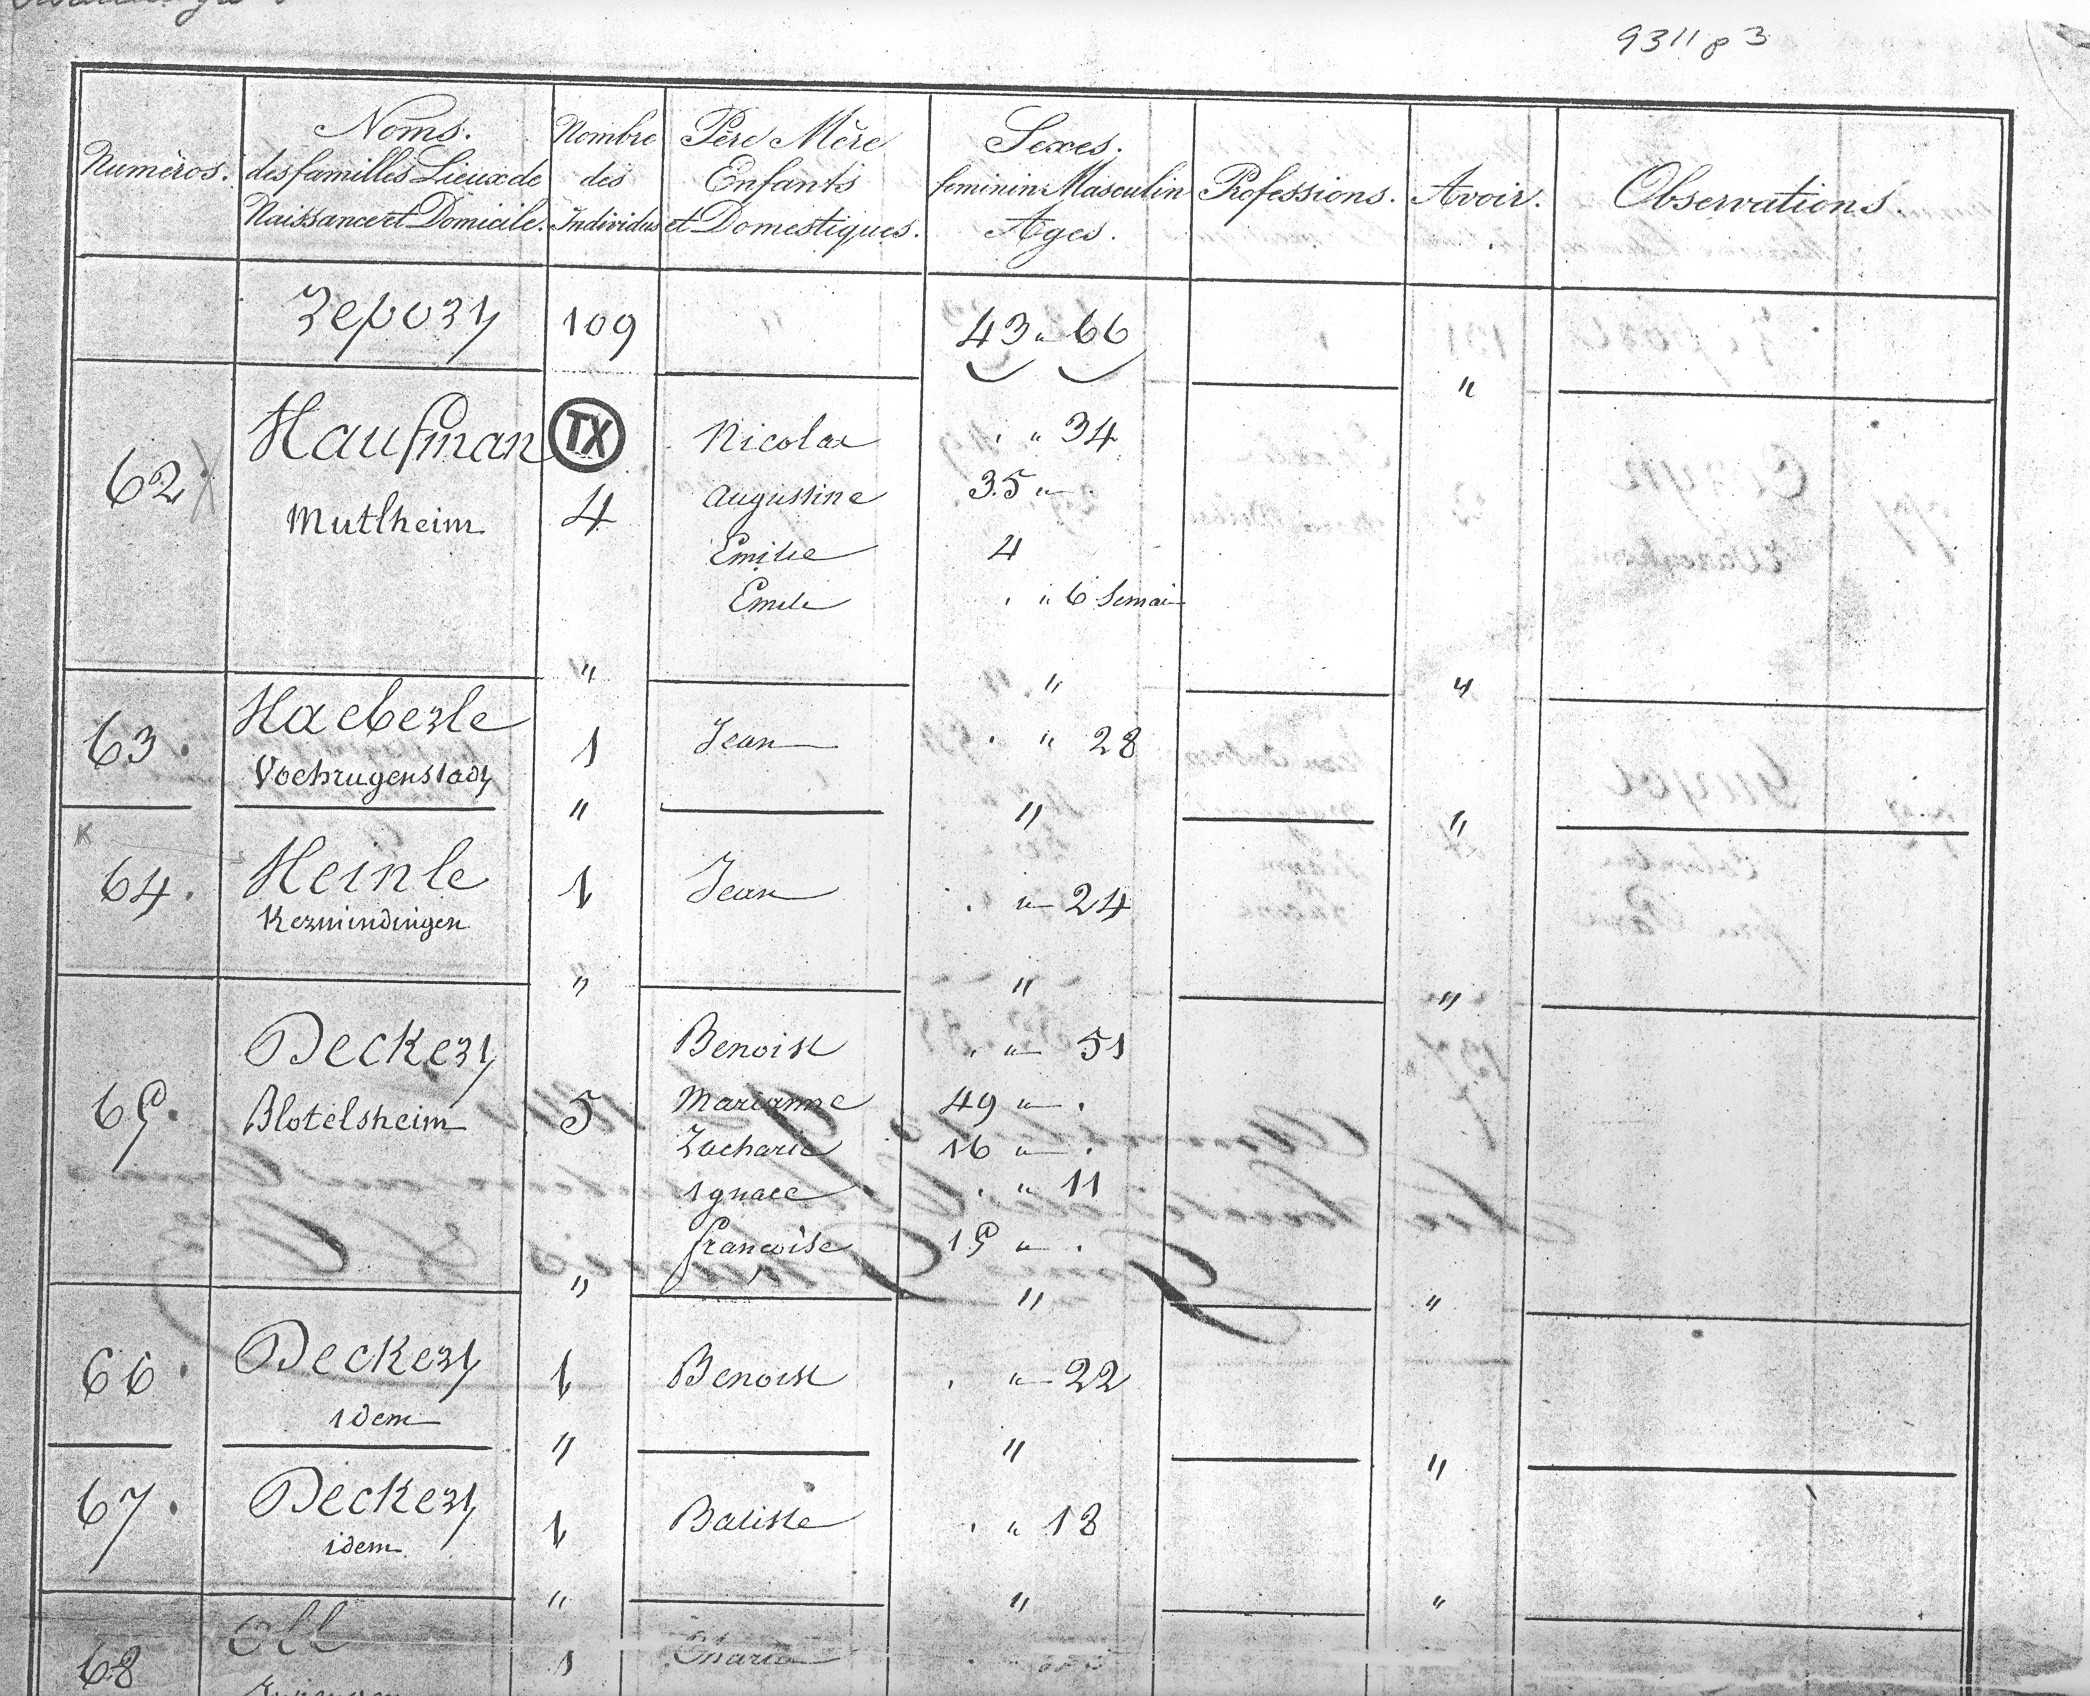 9311 p 3
Numéros. Noms. des familles Lieux de Naissance et Domicile. Nombre des Individus Père Mère Enfants et Domestiques. Sexes. feminin Masculin Ages. Professions. Avoir. Observations.
Report 109 " 43 " 66
62. Haufman TX Nicolas " 34
Mutlheim 4 Augustine 35 "
Emilie 4
Emile " 6 Semai
63. Haeberle 1 Jean " 28
Voehrugenstadt
K
64. Heinle 1 Jean " 24
Kermindingen
65. Deckert 5 Benoist " 51
Blotelsheim Marianne 49 "
Zacharie 16 "
Ignace " 11
françoise 15 "
66. Deckert 1 Benoist " 22
idem
67. Deckert 1 Batiste " 18
idem
68 Oll 1